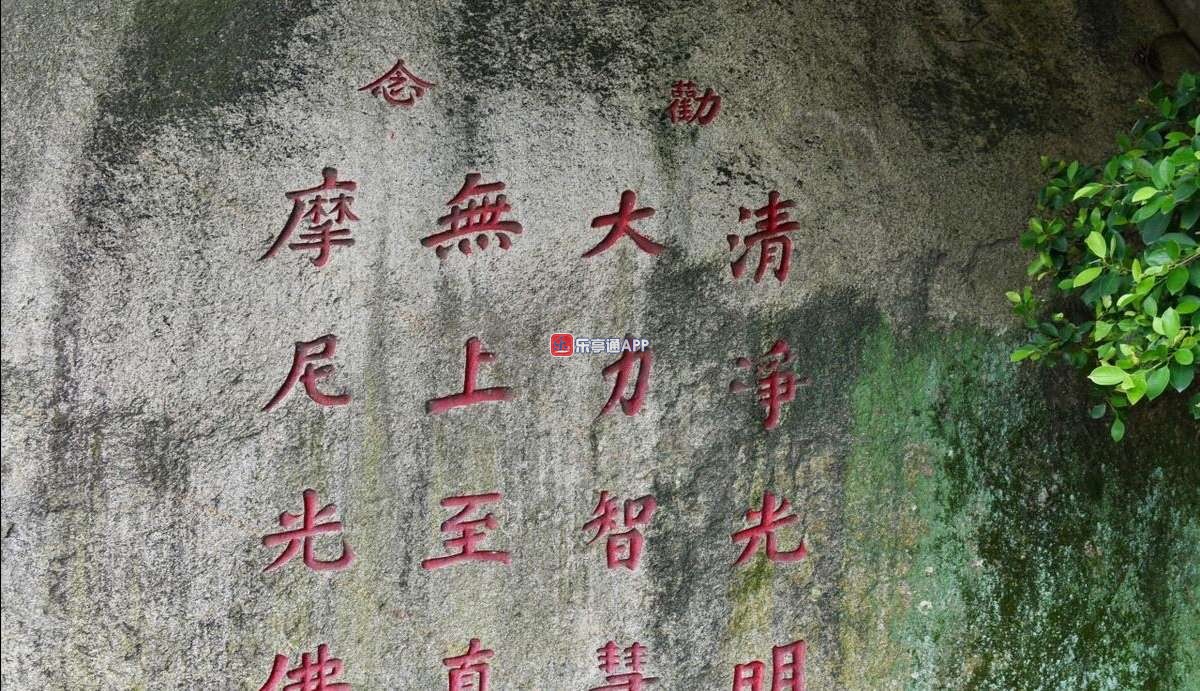 勸念
清淨光明
大力智慧
無上至真
摩尼光佛
乐享通APP